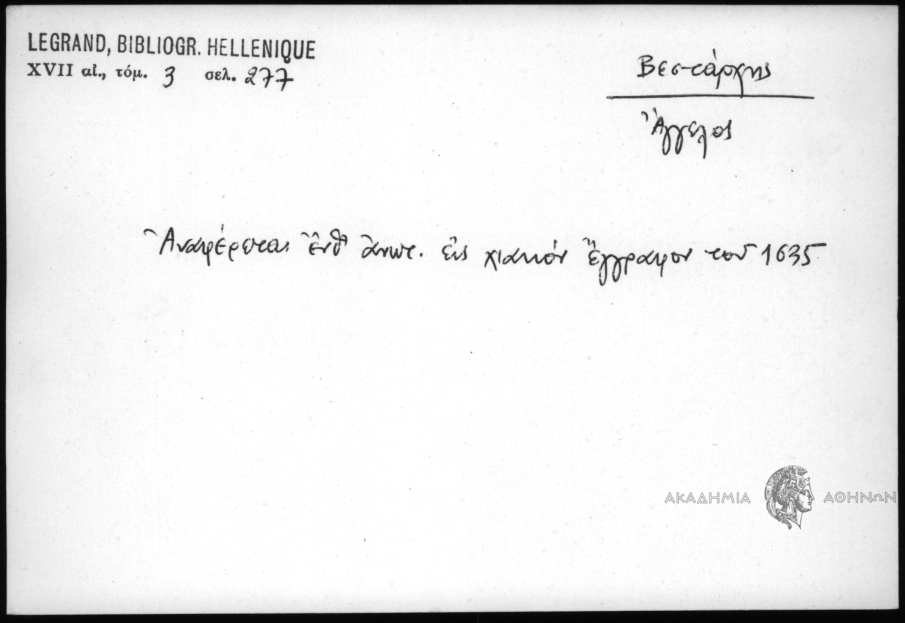 LEGRAND, BIBLIOGR. HELLENIQUE
XVII αἰ., τόμ. 3 σελ. 277
Βεστάρχης
Ἄγγελος
Ἀναφέρεται ἔνθ' ἀνωτ. εἰς χιακὸν ἔγγραφον τοῦ 1635
ΑΚΑΔΗΜΙΑ ΑΘΗΝΩΝ